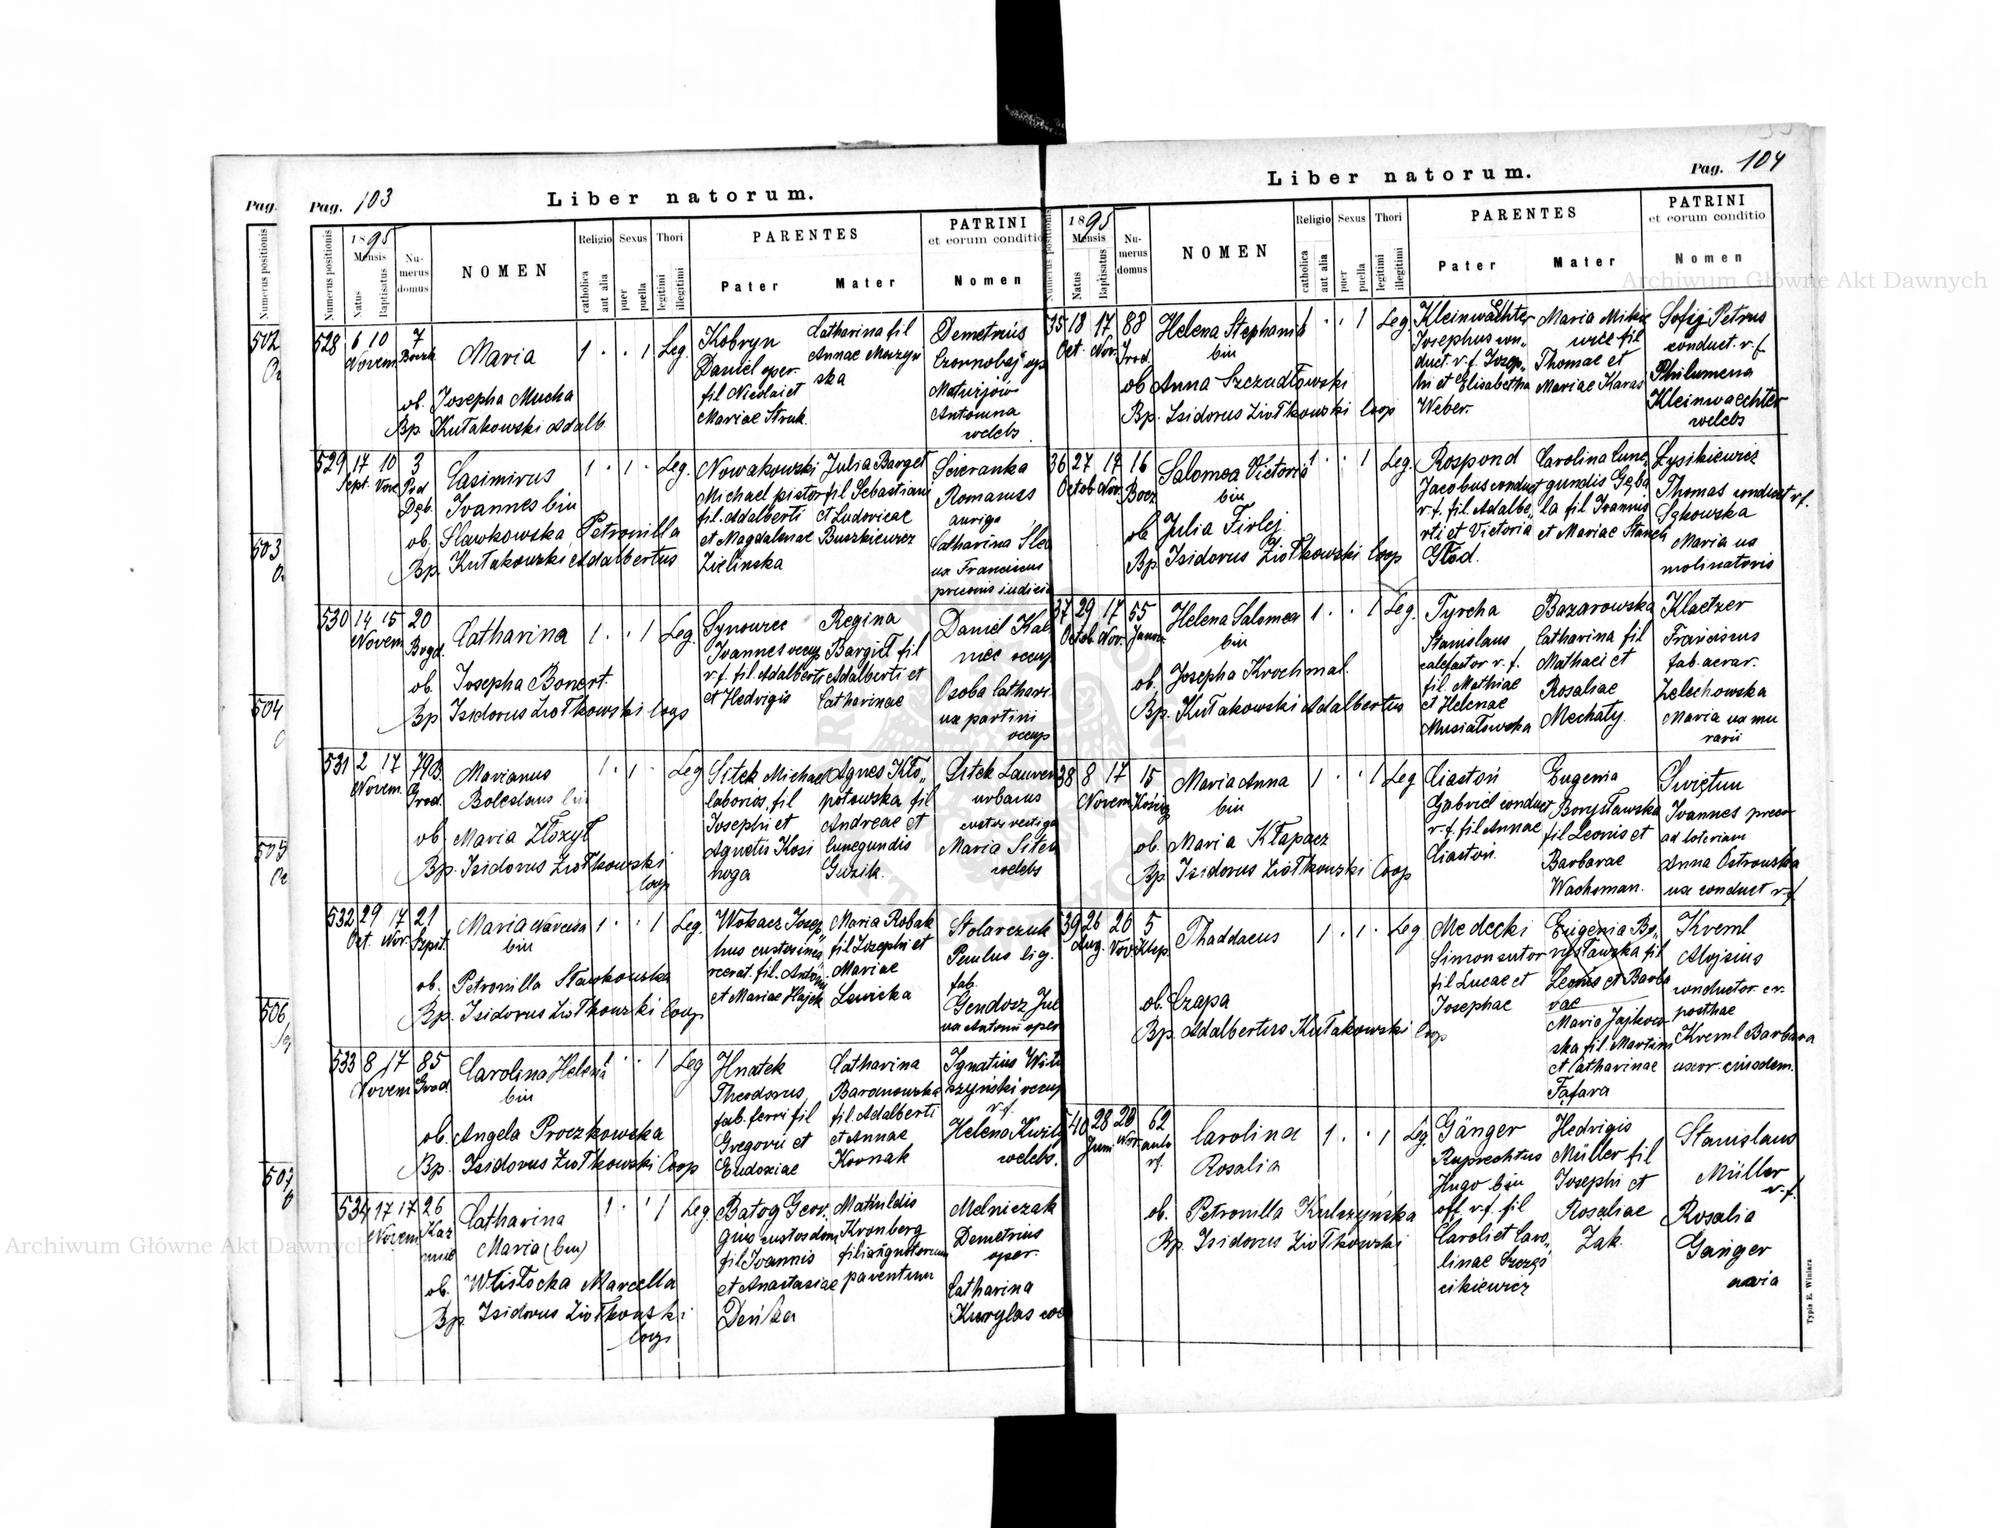 Pag.
Numerus positionis
502
503
504
505
506
507
Pag. 103
Liber natorum.
Numerus positionis
1895
Mensis
Natus
Baptisatus
Numerus domus
NOMEN
Religio
catholica
aut alia
Sexus
puer
puella
Thori
legitimi
illegitimi
PARENTES
Pater
Mater
PATRINI
et eorum conditio
Nomen
528 6 10 7
Novem
Maria
1 . . 1 Leg.
ob. Josepha Mucha
Bp. Kułakowski Adalb
Kobryn
Daniel oper.
fil Nicolai et
Mariae Struk.
Catharina fil
Annae Muszyń
ska
Demetrius
Czornobaj op
Maturijów
Antonina
welebs
529 17 10 3
Sept. Nov. Pod
Dęb.
Casimirus
Ioannes bin
1 . 1 . Leg.
ob. Sławkowska Petronilla
Bp. Kułakowski Adalbertus
Nowakowski
Michael pistor
fil. Adalberti
et Magdalenae
Zielinska
Julia Barget
fil Sebastiani
et Ludovicae
Buszkiewicz
Scieranka
Romanus
auriga
Catharina
ux Franciscus
preconis iudicii
530 14 15 20
Novem Bogd.
Catharina
1 . . 1 Leg.
ob. Josepha Bonert.
Bp Isidorus Ziołkowski Coop
Synowiec
Ioannes occup
r.f. fil. Adalberti
et Hedvigis
Regina
Bargieł fil
Adalberti et
Catharinae
Daniel Kal
niec occup
Osoba Cathari
ux partini
occup
531 2 17 79B.
Novem. Grod.
Marianus
Boleslaus bin
1 . 1 . Leg
ob. Maria Złożył
Bp. Isidorus Ziołkowski
Coop
Sitek Michael
laborios. fil
Josephi et
Agnetis Kosi
noga
Agnes Kło
potowska fil
Andreae et
Cunegundis
Guzik.
Sitek Lauren
urbanus
custos vectiga
Maria Sitek
welebs
532 29 17 21
Oct. Nov. Szpit.
Maria Narcisa
bin
1 . . 1 Leg.
ob. Petronilla Sławkowska
Bp. Isidorus Ziołkowski Coop
Wokacz Josep
hus custos inca
rcerat. fil. Antoni
et Mariae Hajek
Maria Robak
fil Josephi et
Mariae
Lewicka
Stolarczuk
Paulus lig.
fab.
Gendosz Jul
ux Antonii oper
533 8 17 85
Novem Grod.
Carolina Helena
bin
1 . . 1 Leg
ob. Angela Proczkowska
Bp. Isidorus Ziołkowski Coop
Hnatek
Theodorus,
fab. ferri fil
Gregorii et
Eudoxiae
Catharina
Baranowska
fil. Adalberti
et Annae
Kornak
Ignatius Wit
szyński occup
r.f.
Helena
welebs.
534 17 17 26
Novem. Kaz
mie
Catharina
Maria (bin)
1 . . 1 Leg.
ob. Wlisłocka Marcella
Bp. Isidorus Ziołkowski
Coop
Batog Geor
gius custos dom
fil Ioannis
et Anastasiae
Deńka
Mathildis
Kronberg
filia ignotorum
parentum
Melniczak
Demetrius
oper.
Catharina
Kurylas
Liber natorum.
Pag. 104
Numerus positionis
1895
Mensis
Natus
Baptisatus
Numerus domus
NOMEN
Religio
catholica
aut alia
Sexus
puer
puella
Thori
legitimi
illegitimi
PARENTES
Pater
Mater
PATRINI
et eorum conditio
Nomen
35 18 17 88
Oct. Nov. Grod.
Helena Stephania
bin
1 . . 1 Leg
ob Anna Szczudłowski
Bp. Isidorus Ziołkowski Coop
Kleinwächter
Josephus con
duct. r.f. Josep
hi et Elisabetha
Weber.
Maria Mikie
wicz fil
Thomae et
Mariae Karas
Sofij Petrus
conduct. r.f.
Philumena
Kleinwaechter
welebs
36 27 17 16
Octob Nov. Bocz
Salomea Victoria
bin
1 . . 1 Leg.
ob Julia Firlej
Bp Isidorus Ziołkowski Coop
Rospond
Jacobus conduct
r.f. fil. Adalbe
rti et Victoria
Głod.
Carolina Cune
gundis Gęba
la fil Ioannis
et Mariae Stanek
Łysikiewicz
Thomas conduct r.f.
Sękowska
Maria ux
molinatoris
37 29 17 55
Octob Nov. Janow
Helena Salomea
bin
1 . . 1 Leg.
ob. Josepha Krochmal.
Bp. Kułakowski Adalbertus
Tyrcha
Stanislaus
calefactor r.f.
fil. Mathiae
et Helenae
Musiałowska
Bazarowska
Catharina fil
Mathaei et
Rosaliae
Mechaty.
Klaetzer
Franciscus
fab. aerar.
Zelechowska
Maria ux mu
rarii
38 8 17 15
Novem
Maria Anna
bin
1 . . 1 Leg
ob. Maria Kłapacz
Bp. Isidorus Ziołkowski Coop
Ciastoń
Gabriel conduct
r.f. fil Annae
Ciastoń.
Eugenia
Borysławska
fil Leonis et
Barbarae
Wachsman.
Swiętun
Ioannes preco
ad loteriam
Anna Ostrowska
ux conduct r.f.
39 26 20 5
Aug. Nov. Klep.
Thaddaeus
1 . 1 . Leg.
ob. Czapa
Bp. Adalbertus Kułakowski Coop
Medecki
Simon sutor
fil Lucae et
Josephae
Eugenia Bo
rysławska fil
Leonis et Barba
rae
Maria Jajkow
ska fil. Martini
et Catharinae
Fafara
Kreml
Alojsius
conductor er.
posthae
Kreml Barbara
uxor eiusdem.
540 28 20 62
Juni Nov. aula
r.f.
Carolina
Rosalia
1 . . 1 Leg
ob. Petronilla Kulczyńska
Bp. Isidorus Ziołkowski
Gänger
Ruprechtus
Hugo bin
off. r.f. fil
Caroli et Caro
linae Szczęś
cikiewicz
Hedvigis
Müller fil
Josephi et
Rosaliae
Zak.
Stanislaus
Müller
r.f.
Rosalia
Gänger
avia
Typis E. Winiarz
Archiwum Główne Akt Dawnych
Archiwum Główne Akt Dawnych